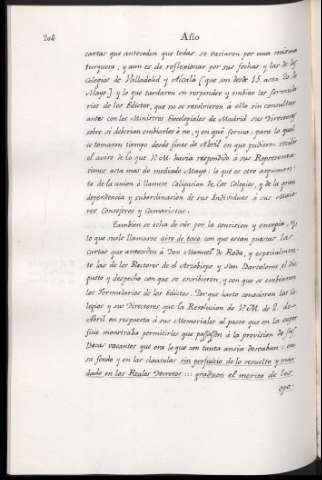 204
Año
cartas que anteceden que todas se vaciaron por una misma
turquesa; y aun es de reflexionar por sus fechas y las de los
Colegios de Valladolid y Alcalá (que son desde 15. asta 20. de
Mayo) y lo que tardaron en responder y embiar los formula-
rios de los Edictos, que no se resolvieron á ello sin consultar
antes con los Ministros Escolegiales de Madrid sus Directores
sobre si deberian embiarlos ó no, y en qué forma: para lo qual
se tomaron tiempo desde fines de Abril en que pudieron recibir
el aviso de lo que V. M. havia respondido á sus Representa-
ciones asta mas de mediado Mayo: lo que es otro argumen-
to de la union ó llamese Coligacion de los Colegios, y de la gran
dependencia y subordinacion de sus Individuos á sus Maio-
res Consejeros y Camaristas.
Tambien se echa de vér por la concision y energia, y
lo que suele llamarse aire de taco con que estan puestas las
cartas que anteceden á Don Manuel de Roda, y especialmen-
te las de los Rectores de el Arzobispo y San Bartolomé el dis-
gusto y despecho con que se escribieron, y con que se embiaron
los Formularios de los Edictos. Porque harto conocieron los Co-
legios y sus Directores que la Resolucion de V. M. de 2. de
Abril en respuesta á sus Memoriales al paso que en la super-
ficie mostraba permitirles que pasasen á la provision de sus
Becas vacantes que era lo que con tanta ansia deseaban: en
su fondo y en las clausulas sin perjuicio de lo resuelto y man-
dado en los Reales Decretos ::: gradúen el merito de los
opo-